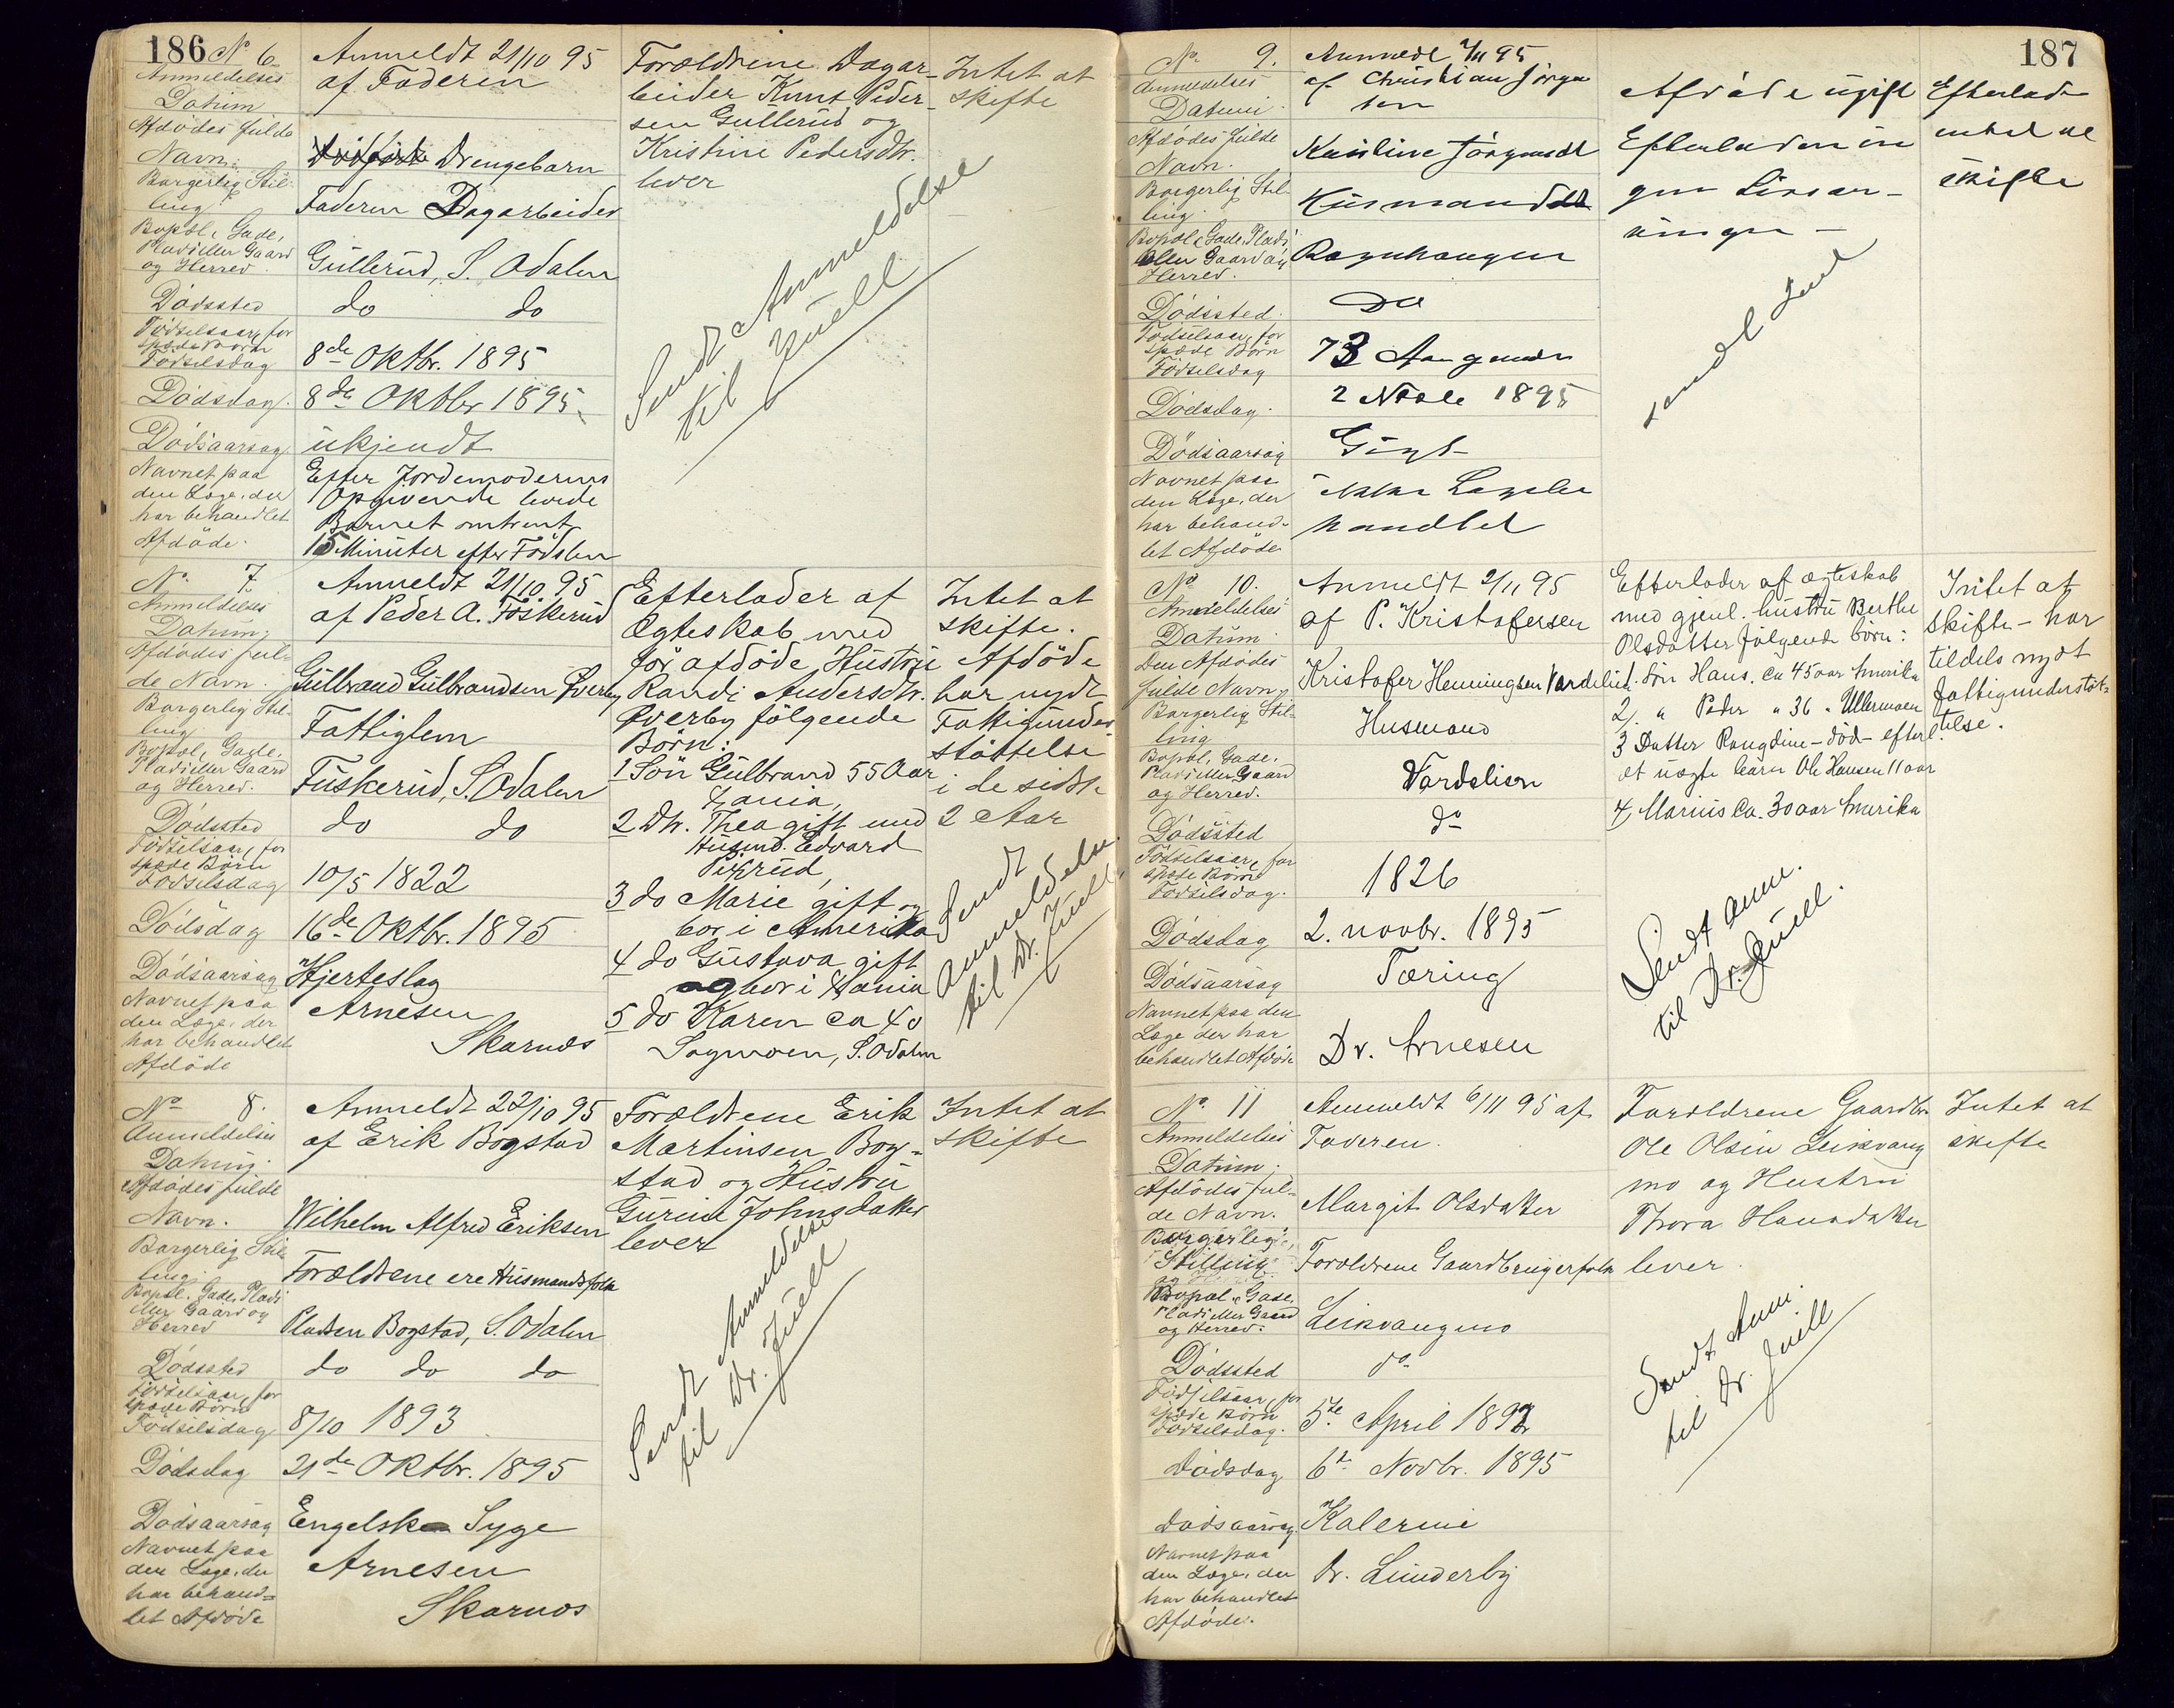 186 No 6
Anmeldelses
Datum
Afdödes fulde
Navn.
Borgerlig Stil-
ling
Bopæl, Gade,
Plads eller Gaard
og Herred.
Dödssted
Födselsaar, for
spæde Börn
Födselsdag
Dödsdag.
Dödsaarsag
Navnet paa
den Læge, der
har behandlet
Afdöde.
Anmeldt 21/10 95
af Faderen
Drengebarn
Faderen Dagarbeider
Gullerud, S. Odalen
do do
8de Oktbr. 1895
8de Oktbr 1895
ukjendt
Efter Jordemoderens
Opgivende levede
Barnet omtrent
15 Minuter efter Födslen
Forældrene Dagar-
beider Knut Peder-
sen Gullerud og
Kristine Pedersdtr.
lever
Sendt Anmeldelse
til Juell
Intet at
skifte
No 7.
Anmeldelses
Datum.
Afdödes ful-
de Navn.
Borgerlig Stil-
ling
Bopæl, Gade,
Plads eller Gaard
og Herred.
Dödssted
Födselsaar, for
spæde Börn
Födselsdag
Dödsdag
Dödsaarsag
Navnet paa
den Læge, der
har behandlet
Afdöde
Anmeldt 21/10 95
af Peder A. Fuskerud
Gulbrand Gulbrandsen Överby
Fattiglem
Fuskerud, S. Odalen
do do
10/5 1822
16de Oktbr. 1895
Hjerteslag
Arnesen
Skarnæs
Efterlader af
Ægteskab med
för afdöde Hustru
Randi Andersdtr.
Överby fölgende
Börn:
1 Sön Gulbrand 55 Aar
Xania,
2 Dtr. Thea gift med
Husmd. Edvard
3 do Marie gift og
bor i Amerika
4 do Gustava gift
og bor i Xania
5 do Karen ca 40
Sagmoen, S. Odalen
Intet at
skifte.
Afdöde
har nydt
Fattigunder-
stöttelse
i de sidste
2 Aar
Sendt
Anmeldelse
til Dr. Juell.
No 8.
Anmeldelses
Datum.
Afdödes fulde
Navn.
Borgerlig Stil-
ling.
Bopæl. Gade, Plads
eller Gaard og
Herred
Dödssted
Födselsaar, for
spæde Börn
Födselsdag
Dödsdag
Dödsaarsag
Navnet paa
den Læge, der
har behand-
let Afdöde
Anmeldt 22/10 95
af Erik Bogstad
Wilhelm Alfred Eriksen
Forældrene ere Husmandsfolk
Pladsen Bogstad, S. Odalen
do do do
8/10 1893
21de Oktbr. 1895
Engelske Syge
Arnesen
Skarnæs
Forældrene Erik
Martinsen Bog-
stad og Hustru
Gurine Johnsdatter
lever
Sendt Anmeldelse
til Dr. Juell
Intet at
skifte
187
No 9.
Anmeldelses
Datum.
Afdödes fulde
Navn.
Borgerlig Stil-
ling.
Bopæl, Gade, Plads
eller Gaard og
Herred.
Dödssted.
Födselsaar, for
spæde Börn
Födselsdag
Dödsdag.
Dödsaarsag
Navnet paa
den Læge, der
har behand-
let Afdöde
Anmeldt 2/11 95
af Christian Jörgen
sen
Karoline Jörgensdt
Husmandsdt
Ragnhaugen
Do
73 Aar gammel
2 Novbr 1895
Gigt
ikke Lægebe
handlet
Afdöde ugift
Efterlader in
gen Livsar-
vinger -
sendt Juel
Efterlader
intet at
skifte
No 10.
Anmeldelses
Datum.
Den Afdödes
fulde Navn
Borgerlig Stil-
ling
Bopæl, Gade.
Plads eller Gaard
og Herred.
Dödssted
Födselsaar, for
spæde Börn
Födselsdag.
Dödsdag
Dödsaarsag
Navnet paa den
Læge der har
behandlet Afdöde
Anmeldt 2/11 95
af P. Kristofersen
Kristofer Henningsen Vardelien
Husmand
Vardelien
do
1826
2. novbr. 1895
Tæring
Dr. Arnesen
Efterlader af ægteskab
med gjenl. hustru Berthe
Olsdatter fölgende börn:
1. Sön Hans. ca 45 aar Amerika
2/. " Peder " 36 " Ullermoen
3 Datter Rangdine - död - efterl.
et uægte barn Ole Hansen 11 aar
4/ Marius ca. 30 aar Amerika
Sendt anm.
til Dr. Juell.
Intet at
skifte - har
tildels nydt
fattigunderstöt-
telse.
No. 11
Anmeldelses
Datum.
Afdödes ful-
de Navn.
Borgerlig
Stilling
Bopæl, Gade,
Plads eller Gaard
og Herred.
Dödssted
Födselsaar, for
spæde Börn
Födselsdag.
Dödsdag
Dödsaarsag
Navnet paa
den Læge, der
har behandlet
Afdöde.
Anmeldt 6/11 95 af
Faderen.
Margit Olsdatter
Forældrene Gaardbrugerfolk
Leikvangmo
do
5te April 1892
6te Novbr. 1895
Kolerine
Dr. Lunderby
Forældrene Gaardbr.
Ole Olsen Leikvang
mo og Hustru
Thora Hansdatter
lever.
Sendt Anm.
til Dr. Juell
Intet at
skifte